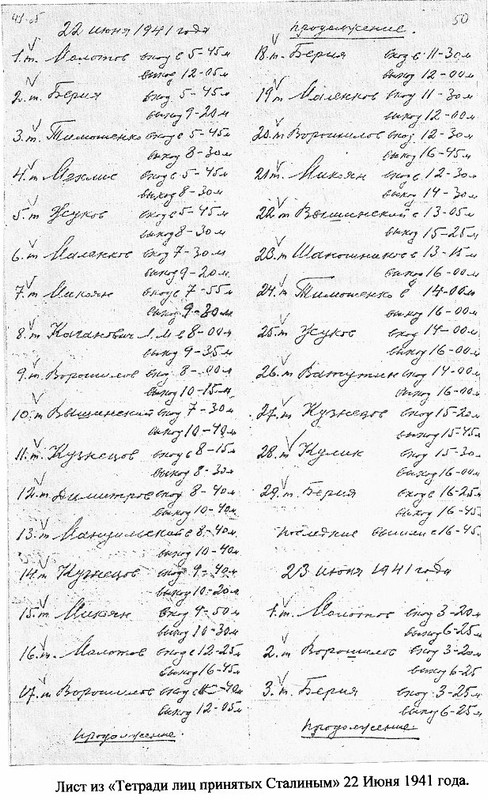 22 июня 1941 года
1. т. Молотов вход в 5-45м
выход 12-05м
2. т. Берия вход 5-45м
выход 9-20м
3. т. Тимошенко вход в 5-45м
выход 8-30м
4. т. Мехлис вход в 5-45м
выход 8-30м
5. т. Жуков вход в 5-45м
выход 8-30м
6. т. Маленков вход 7-30м
выход 9-20м
7. т. Микоян вход в 7-55м
выход 9-30м
8. т. Каганович Л.М в 8-00м
выход 9-35м
9. т. Ворошилов вход 8-00м
выход 10-15м
10. т. Вышинский вход 7-30м
выход 10-40м
11. т. Кузнецов вход в 8-15м
выход 8-30м
12. т. Димитров вход 8-40м
выход 10-40м
13. т. Мануильский в 8-40м
выход 10-40м
14. т. Кузнецов вход 9-40м
выход 10-20м
15. т. Микоян вход 9-50м
выход 10-30м
16. т. Молотов вход в 12-25м
выход 16-45м
17. т. Ворошилов вход в
выход 12-05м
продолжение
50
продолжение.
18. т. Берия вход в 11-30м
выход 12-00м
19. т. Маленков вход 11-30м
выход 12-00м
20. т. Ворошилов вход 12-30м
выход 16-45м
21. т. Микоян вход в 12-30м
выход 14-30м
22. т. Вышинский в 13-05м
выход 15-25м
23. т. Шапошников в 13-15м
выход 16-00м
24. т. Тимошенко в 14-00м
выход 16-00м
25. т. Жуков вход 14-00м
выход 16-00м
26. т. Ватутин вход 14-00м
выход 16-00м
27. т. Кузнецов вход 15-20м
выход 15-45м
28. т. Кулик вход 15-30м
выход 16-00м
29. т. Берия вход в 16-25м
выход 16-45м
Последние вышли в 16-45.
23 июня 1941 года
1. т. Молотов вход 3-20м
выход 6-25м
2. т. Ворошилов вход 3-20м
выход 6-25
3. т. Берия вход 3-25м
выход 6-25м
продолжение
Лист из «Тетради лиц принятых Сталиным» 22 Июня 1941 года.